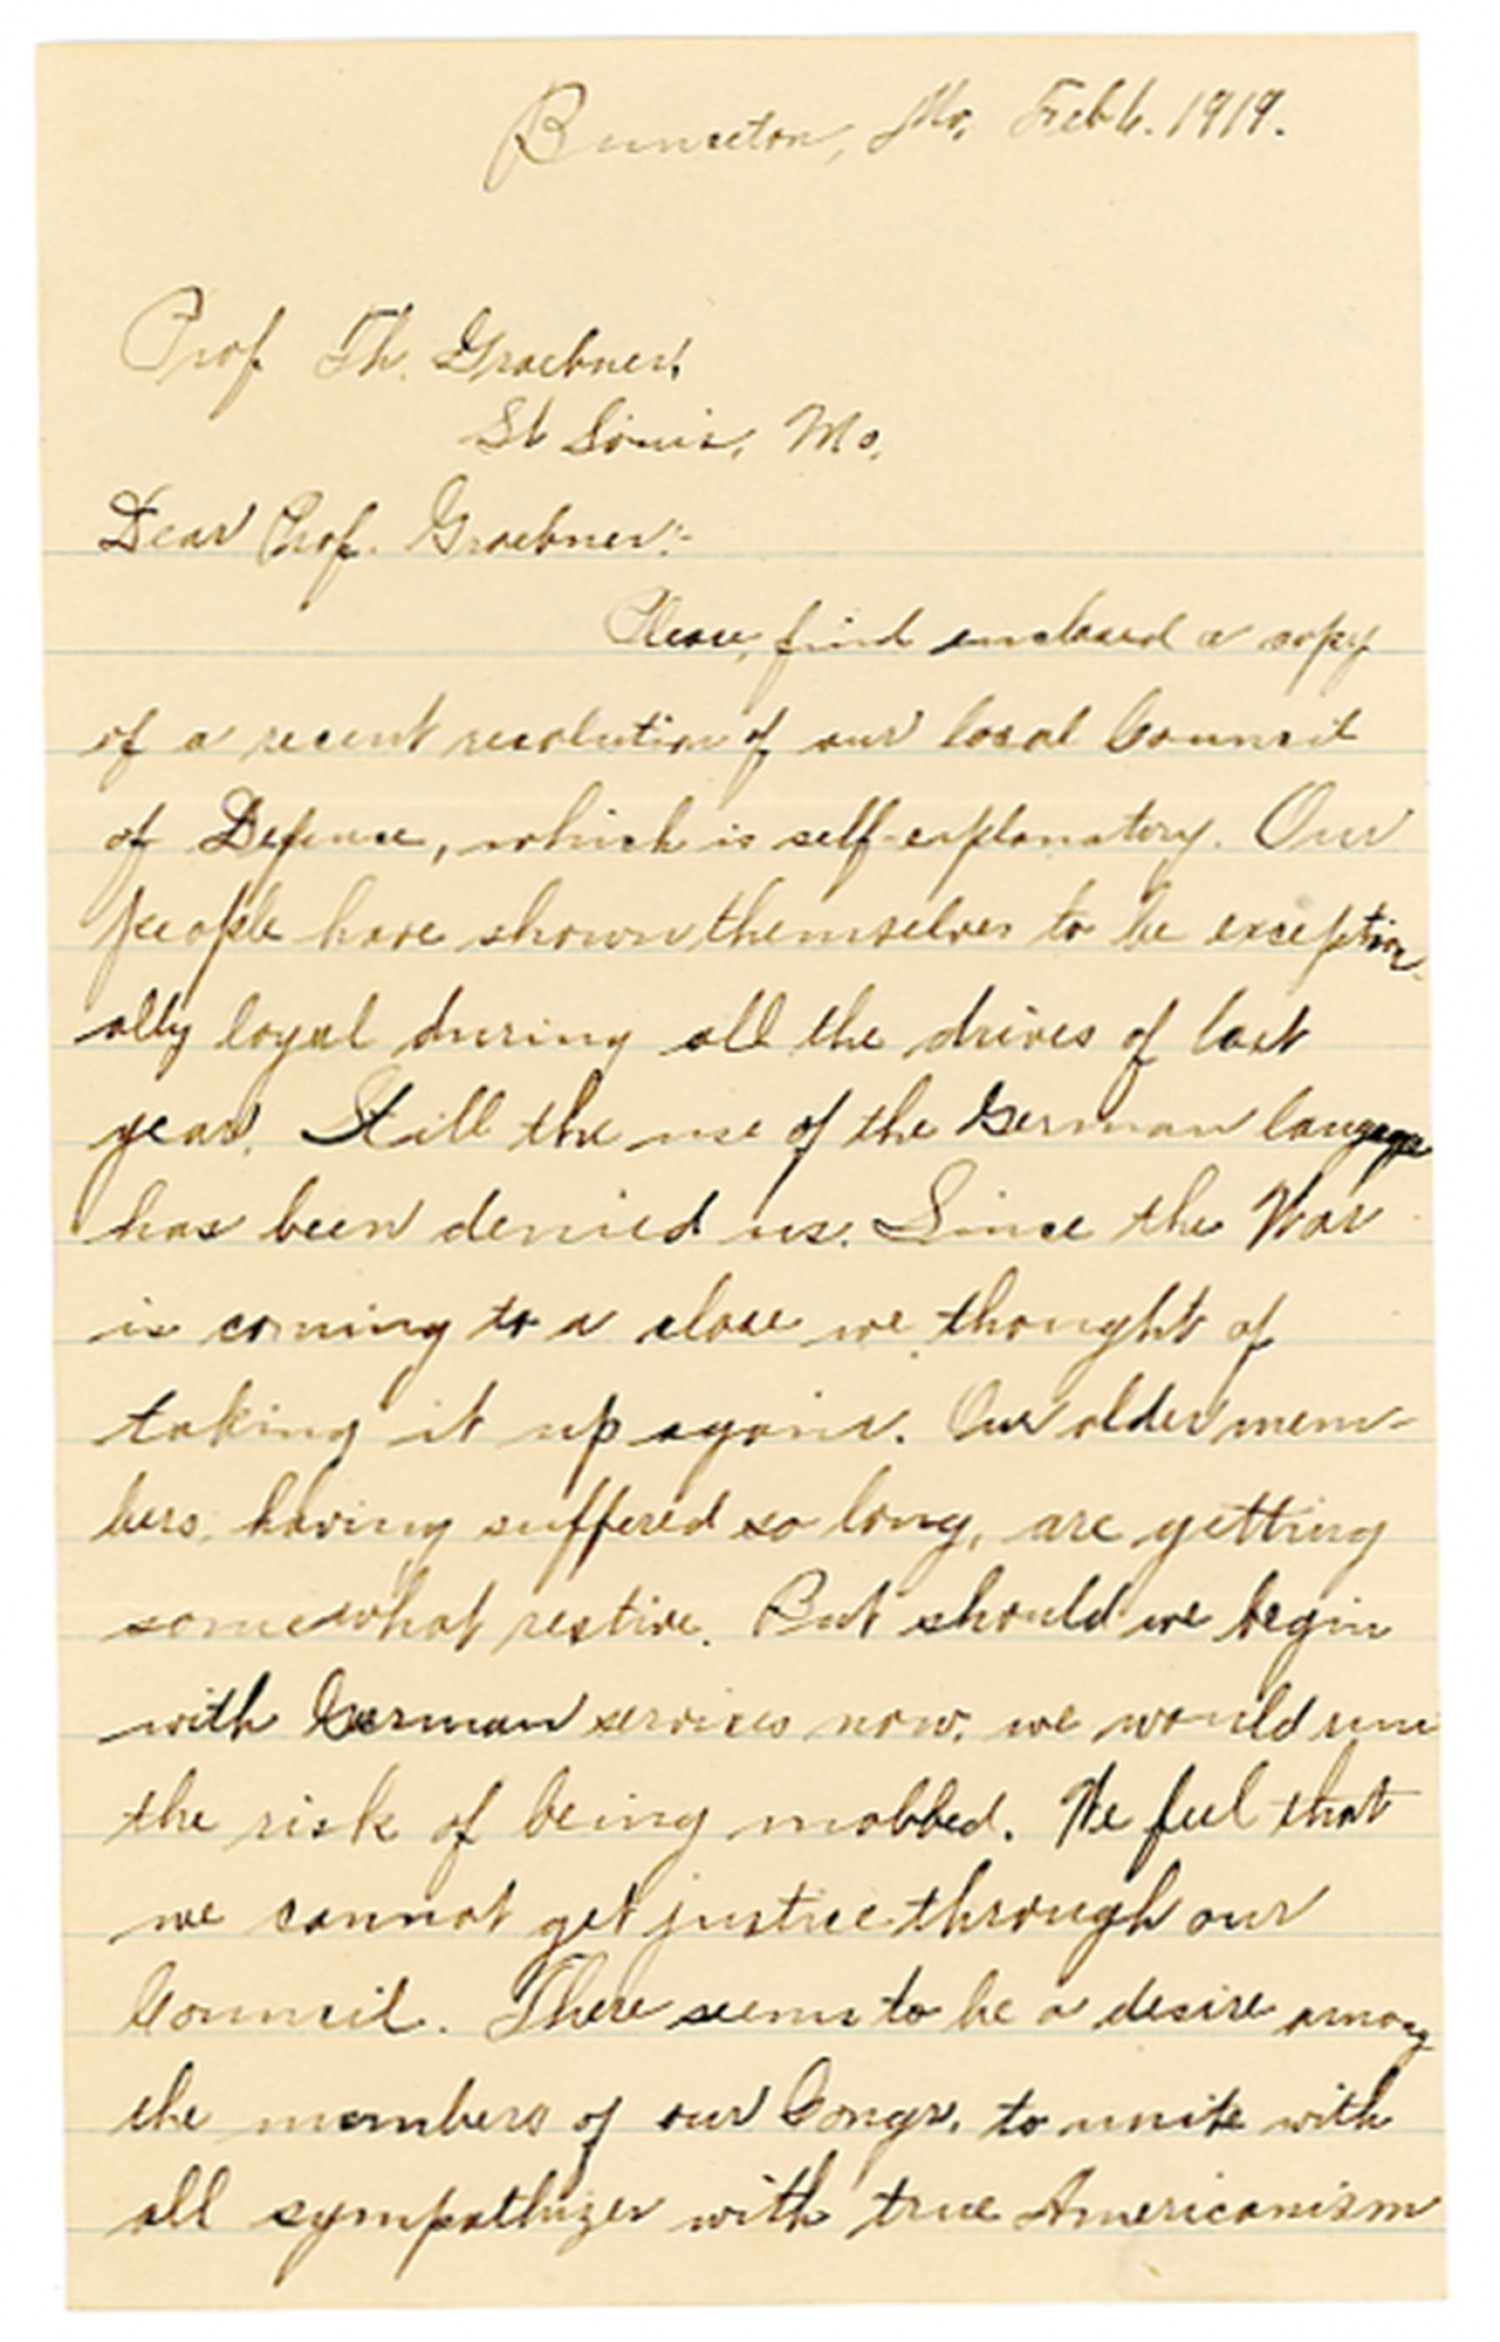 Bunceton, Mo. Feb 6. 1919.
Prof Th. Graebner,
St Louis, Mo.
Dear Prof. Graebner:-
Please, find enclosed a copy
of a recent resolution of our local Council
of Defense, which is self-explanatory. Our
people have shown themselves to be exception-
ally loyal during all the drives of last
year. Still the use of the German language
has been denied us. Since the War
is coming to a close we thought of
taking it up again. Our older mem-
bers, having suffered so long, are getting
somewhat restive. But should we begin
with German services now, we would run
the risk of being mobbed. We feel that
we cannot get justice through our
Council. There seems to be a desire among
the members of our Congr. to unite with
all sympathizer with true Americanism